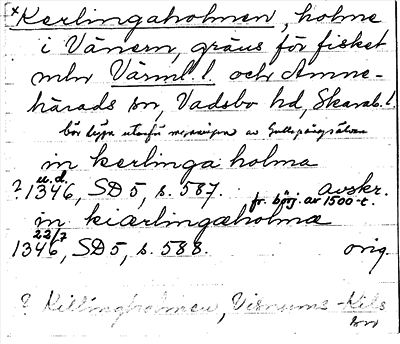 *Kerlingaholmen, holme
i Vänern, gräns för fisket
mln Värml. l. och Amne-
härads sn, Vadsbo hd, Skarab. l.
bör ligga utanför mynningen av Gullspångsälven
in kerlinga holma
u.d.
? 1346, SD 5, s. 587. avskr.
fr. börj. av 1500-t.
in kiærlingæholmæ
22/7
1346, SD 5, s. 588. orig.
? Killingholmen, Visnums-Kils
sn